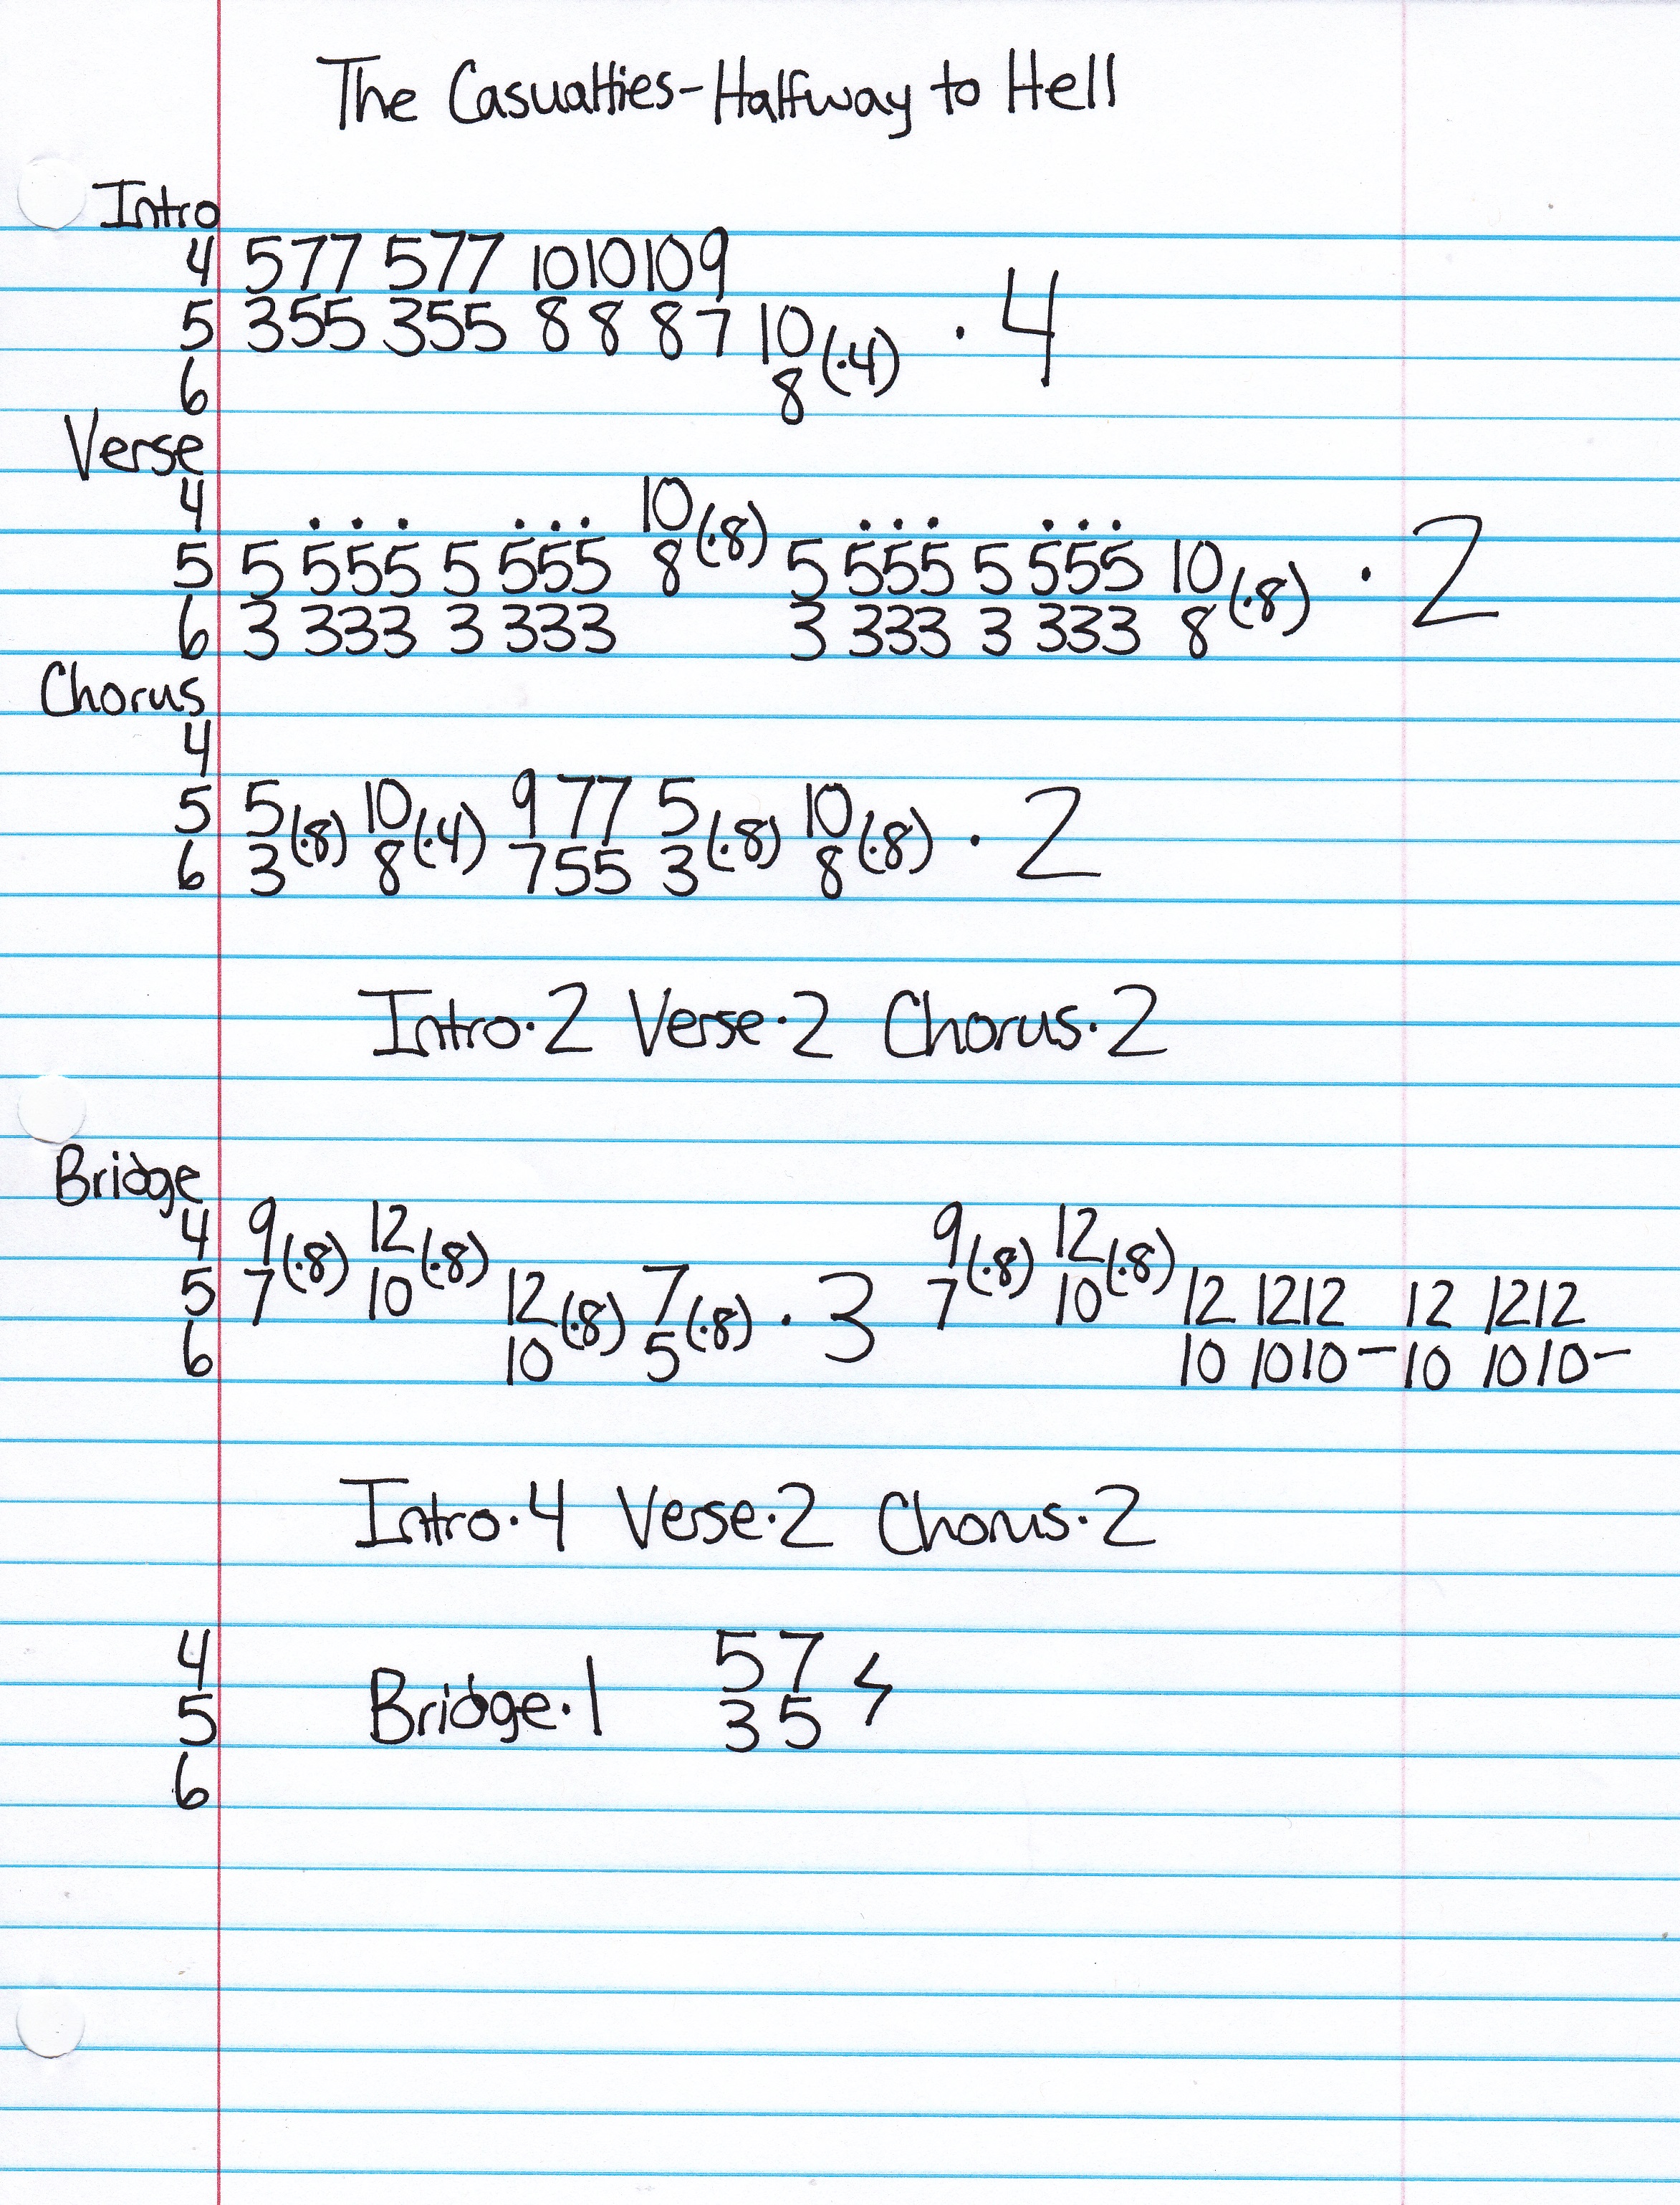 The Casualties-Halfway to Hell
Intro
4 577 577 1010109
5 355 355 8 8 8 7 10 (·4) · 4
6 8
Verse
4 ... ... 10 (·8) ... ...
5 5 555 5 555 8 5 555 5 555 10 (·8) · 2
6 3 333 3 333 3 333 3 333 8
Chorus
4
5 5 (·8) 10 (·4) 9 77 5 (·8) 10 (·8) · 2
6 3 8 755 3 8
Intro·2 Verse·2 Chorus·2
Bridge
4 9 (·8) 12 (·8) 9 (·8) 12 (·8)
5 7 10 12 (·8) 7 (·8) · 3 7 10 12 1212 12 1212
6 10 5 10 1010- 10 1010-
Intro·4 Verse·2 Chorus·2
4 5 7
5 Bridge·1 3 5
6